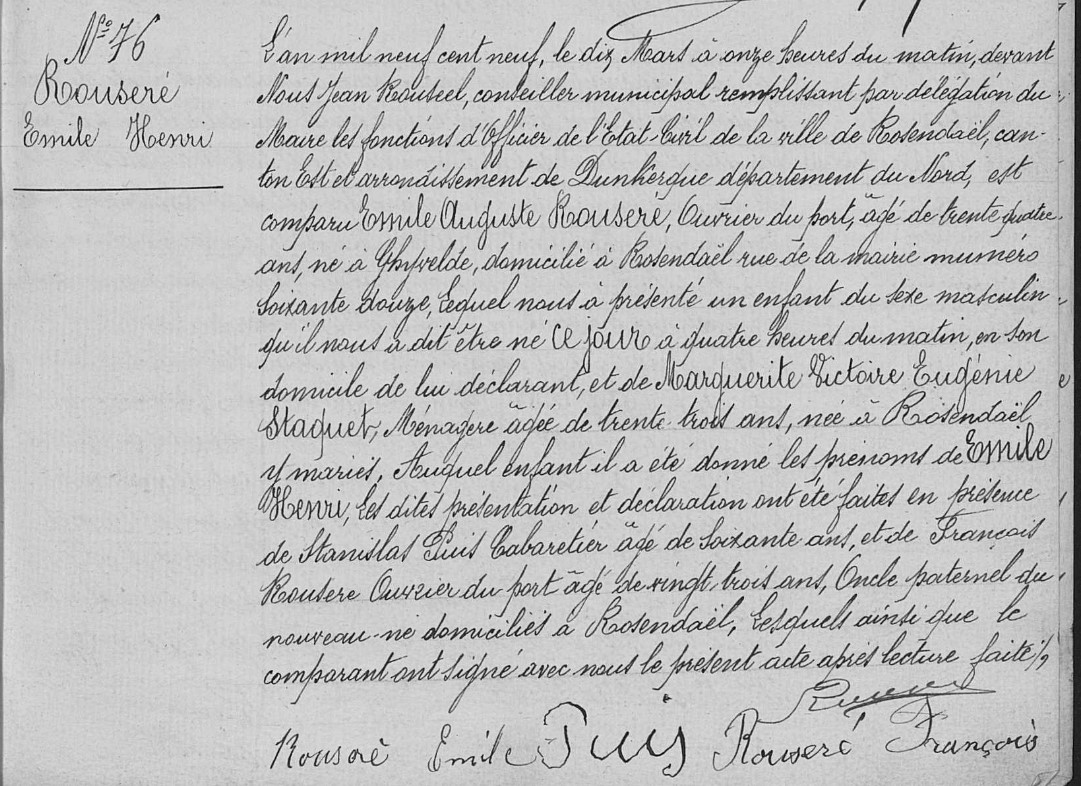 N° 76
Rouseré
Emile Henri
L'an mil neuf cent neuf, le dix Mars à onze heures du matin, devant
Nous Jean Rouseel, conseiller municipal remplissant par délégation du
Maire les fonctions d'Officier de l'Etat-Civil de la ville de Rosendaël, can-
ton Est et arrondissement de Dunkerque département du Nord, est
comparu Emile Auguste Rouseré, Ouvrier du port, âgé de trente quatre
ans, né à Ghyvelde, domicilié à Rosendaël rue de la mairie numéro
soixante douze, Lequel nous à présenté un enfant du sexe masculin
qu'il nous a dit être né ce jour à quatre heures du matin, en son
domicile de lui déclarant, et de Marguerite Victoire Eugénie
Staquet, Ménagère âgée de trente trois ans, née à Rosendaël
y mariés, Auquel enfant il a été donné les prénoms de Emile
Henri, Les dites présentation et déclaration ont été faites en présence
de Stanislas Puis Cabaretier âgé de Soixante ans, et de François
Rousere Ouvrier du port âgé de vingt trois ans, Oncle paternel du
nouveau-né domiciliés à Rosendaël, Lesquels ainsi que le
comparant ont signé avec nous le présent acte après lecture faite
Rouseré Emile Puis Rouseré François